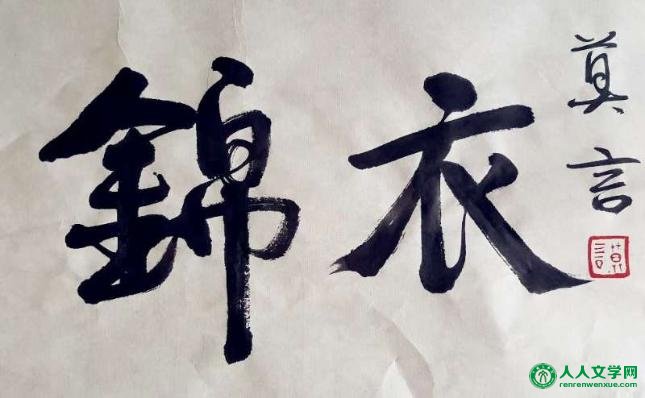 錦衣
莫言
人人文学网
renrenwenxue.com